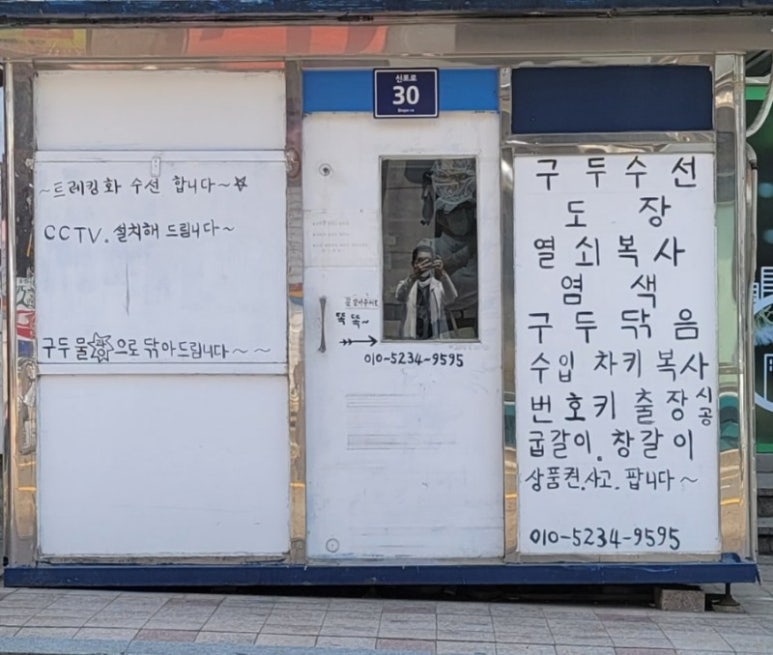 ~트레킹화 수선 합니다~
CCTV. 설치해 드립니다~
구두 물광으로 닦아드립니다~ ~
신포로
30
똑 똑~
010-5234-9595
구두수선
도 장
열쇠복사
염 색
구두닦음
수입 차키 복사
번호키 출장시공
굽갈이. 창갈이
상품권.사고.팝니다~
010-5234-9595